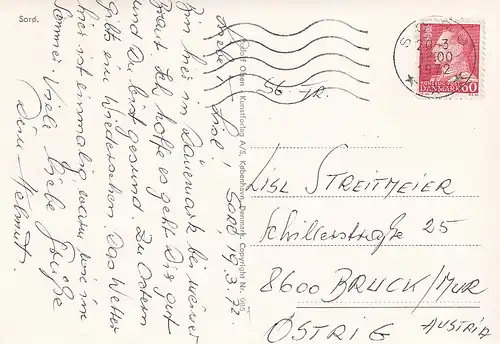 Sorø.
Sorø 19.3.72.
Liebe Lisl!
Bin hier in Dänemark bei meiner
Braut. Ich hoffe es geht Dir gut
und Du bist gesund. Zu Ostern
gibts eine Wiedersehen. Das Wetter
hier ist einmalig warm, wie im
Sommer. Viele liebe Grüße
Dein Helmut.
Rudolf Olsen Kunstforlag A/S, København, Danmark. Copyright Nr.
56 JR.
20-3
DANMARK 60
LISL STREITMEIER
Schillerstraße 25
8600 BRUCK/MUR
ÖSTRIG AUSTRIA